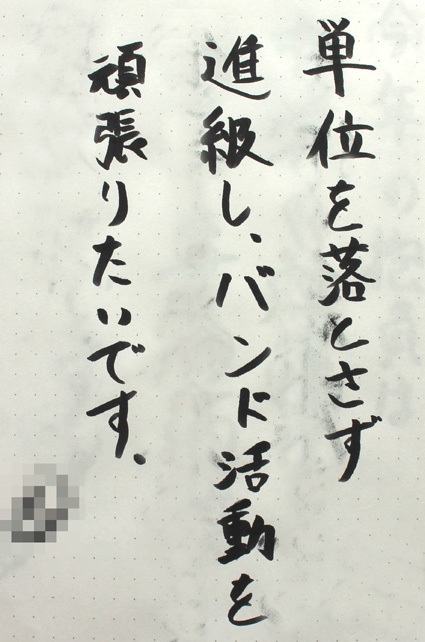 単位を落とさず
進級し、バンド活動を
頑張りたいです。